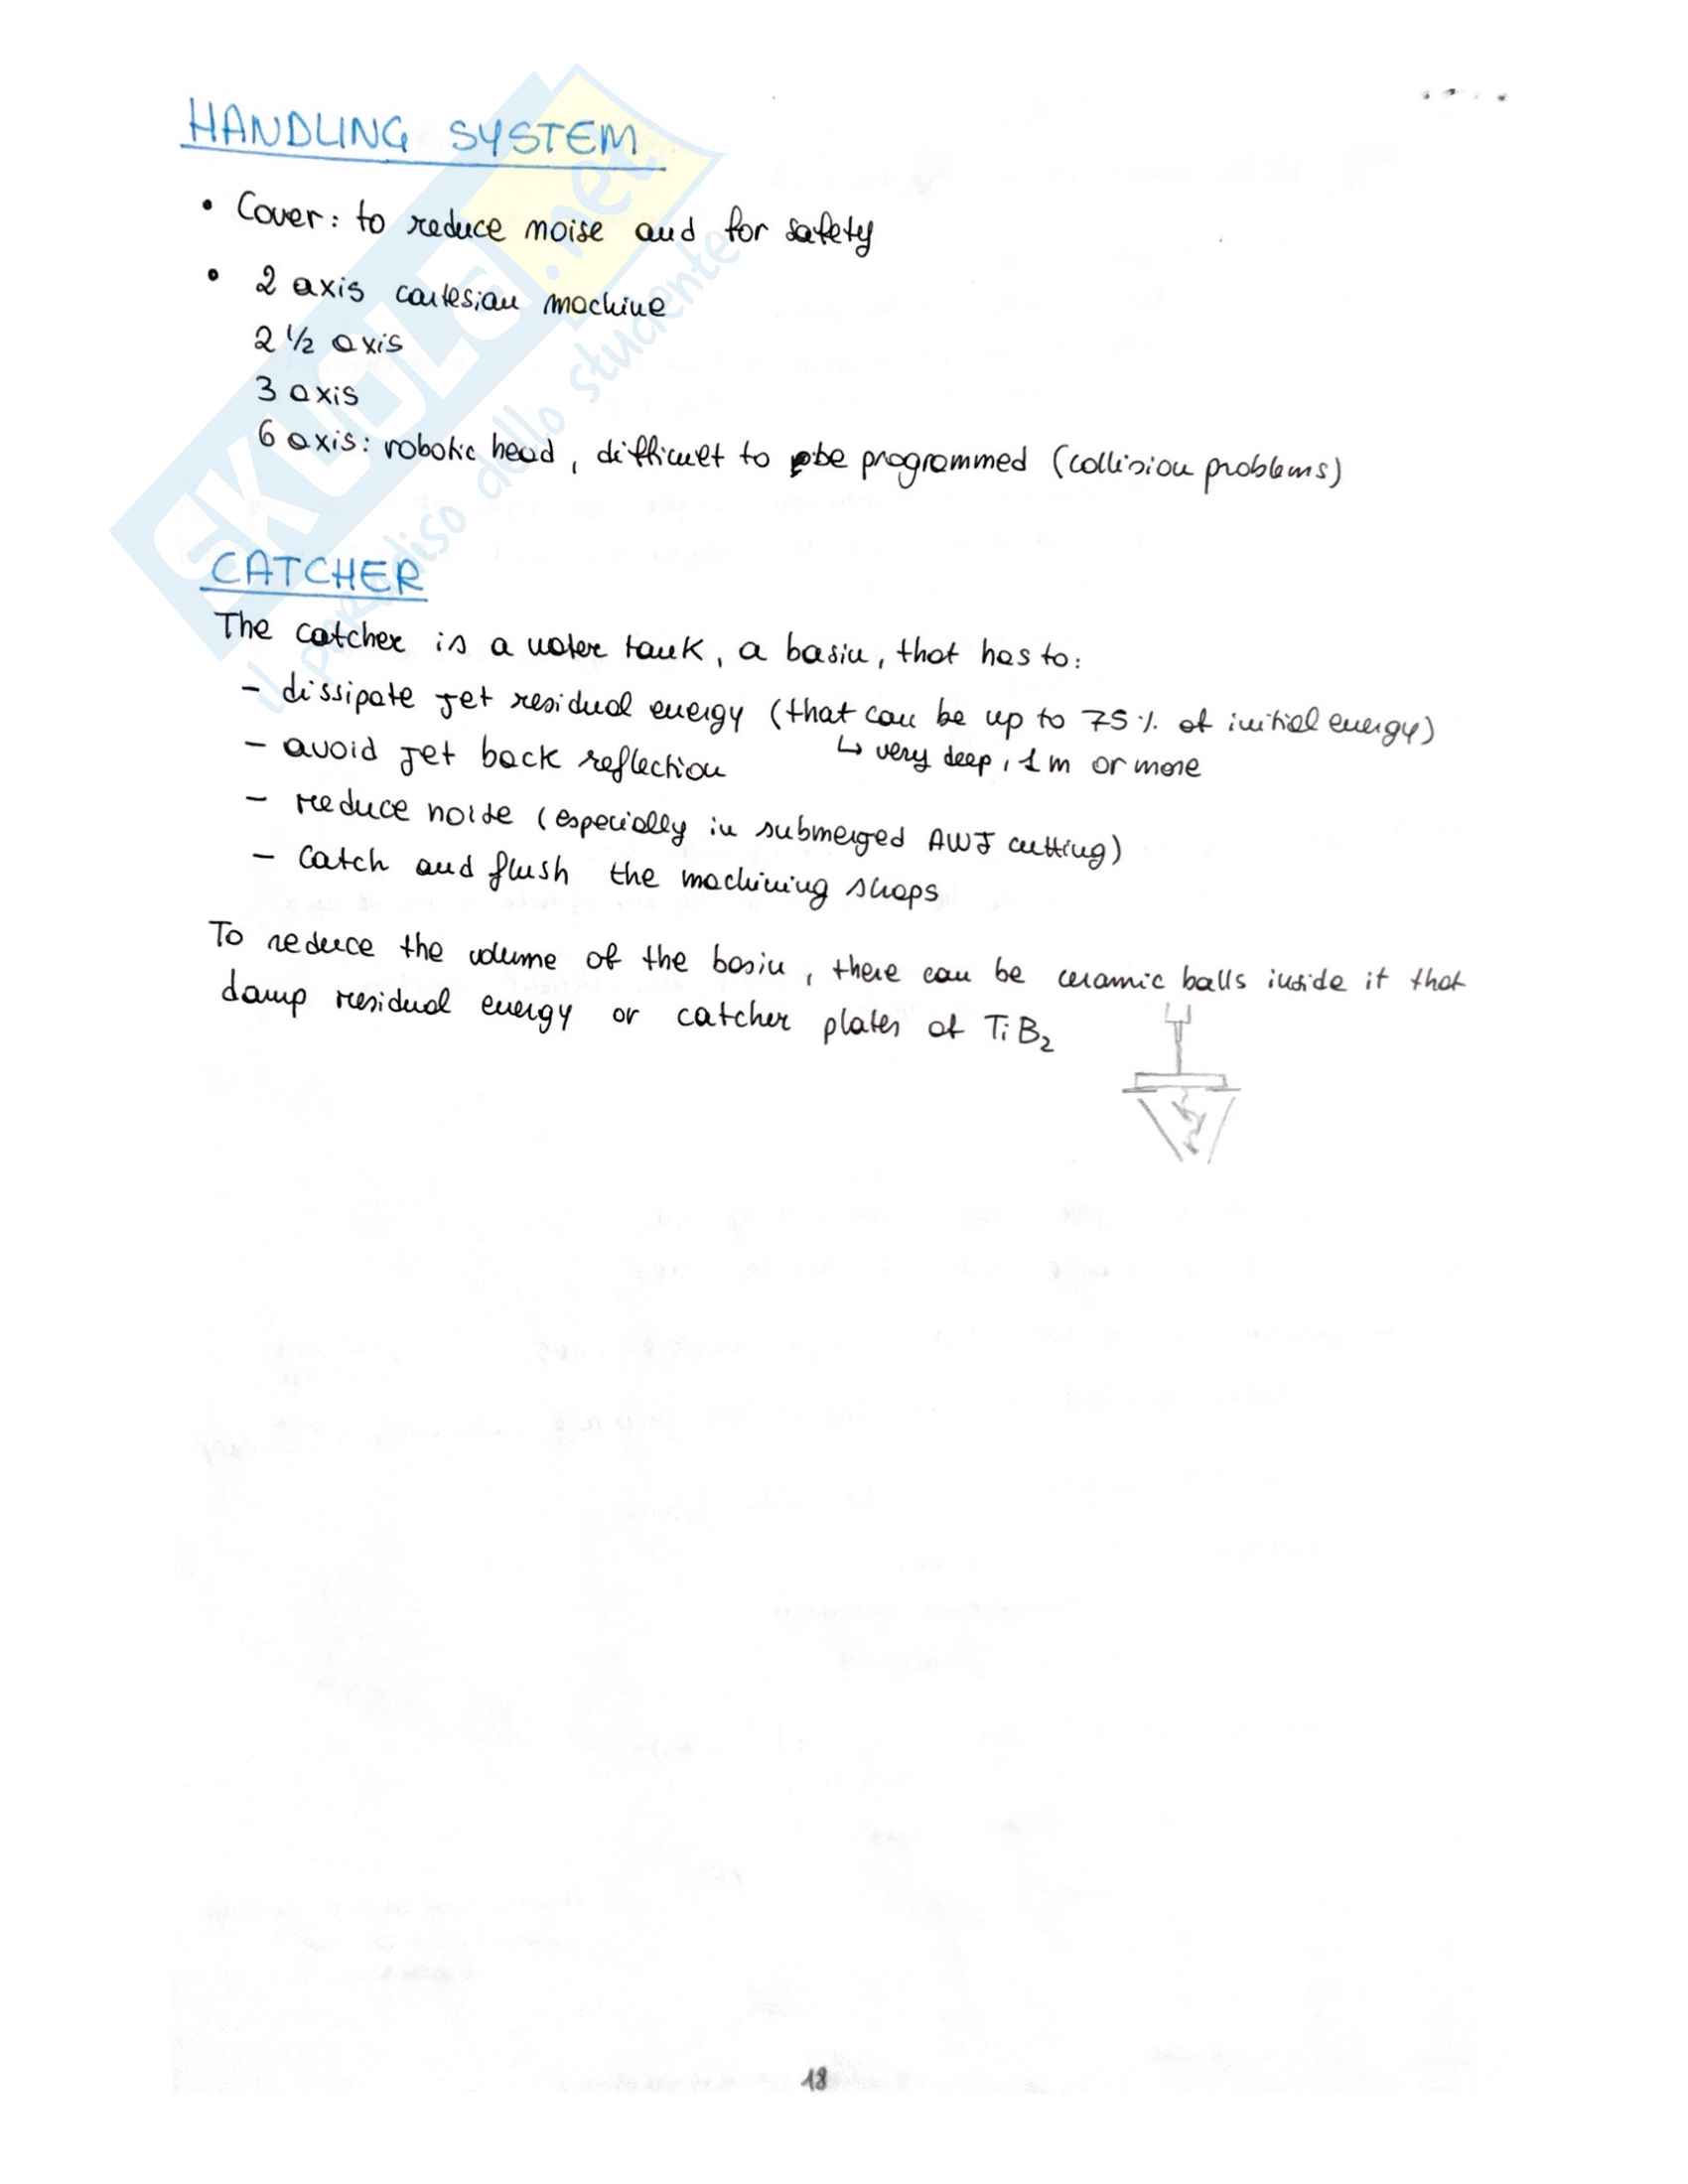 HANDLING SYSTEM
• Cover: to reduce noise and for safety
• 2 axis cartesian machine
2 1/2 axis
3 axis
6 axis: robotic head, difficult to be programmed (collision problems)
CATCHER
The catcher is a water tank, a basin, that has to:
- dissipate jet residual energy (that can be up to 75% of initial energy)
↳ very deep, 1m or more
- avoid jet back reflection
- reduce noise (especially in submerged AWJ cutting)
- catch and flush the machining scraps
To reduce the volume of the basin, there can be ceramic balls inside it that
damp residual energy or catcher plates of TiB2
18
SKUOLA.net
il paradiso dello studente